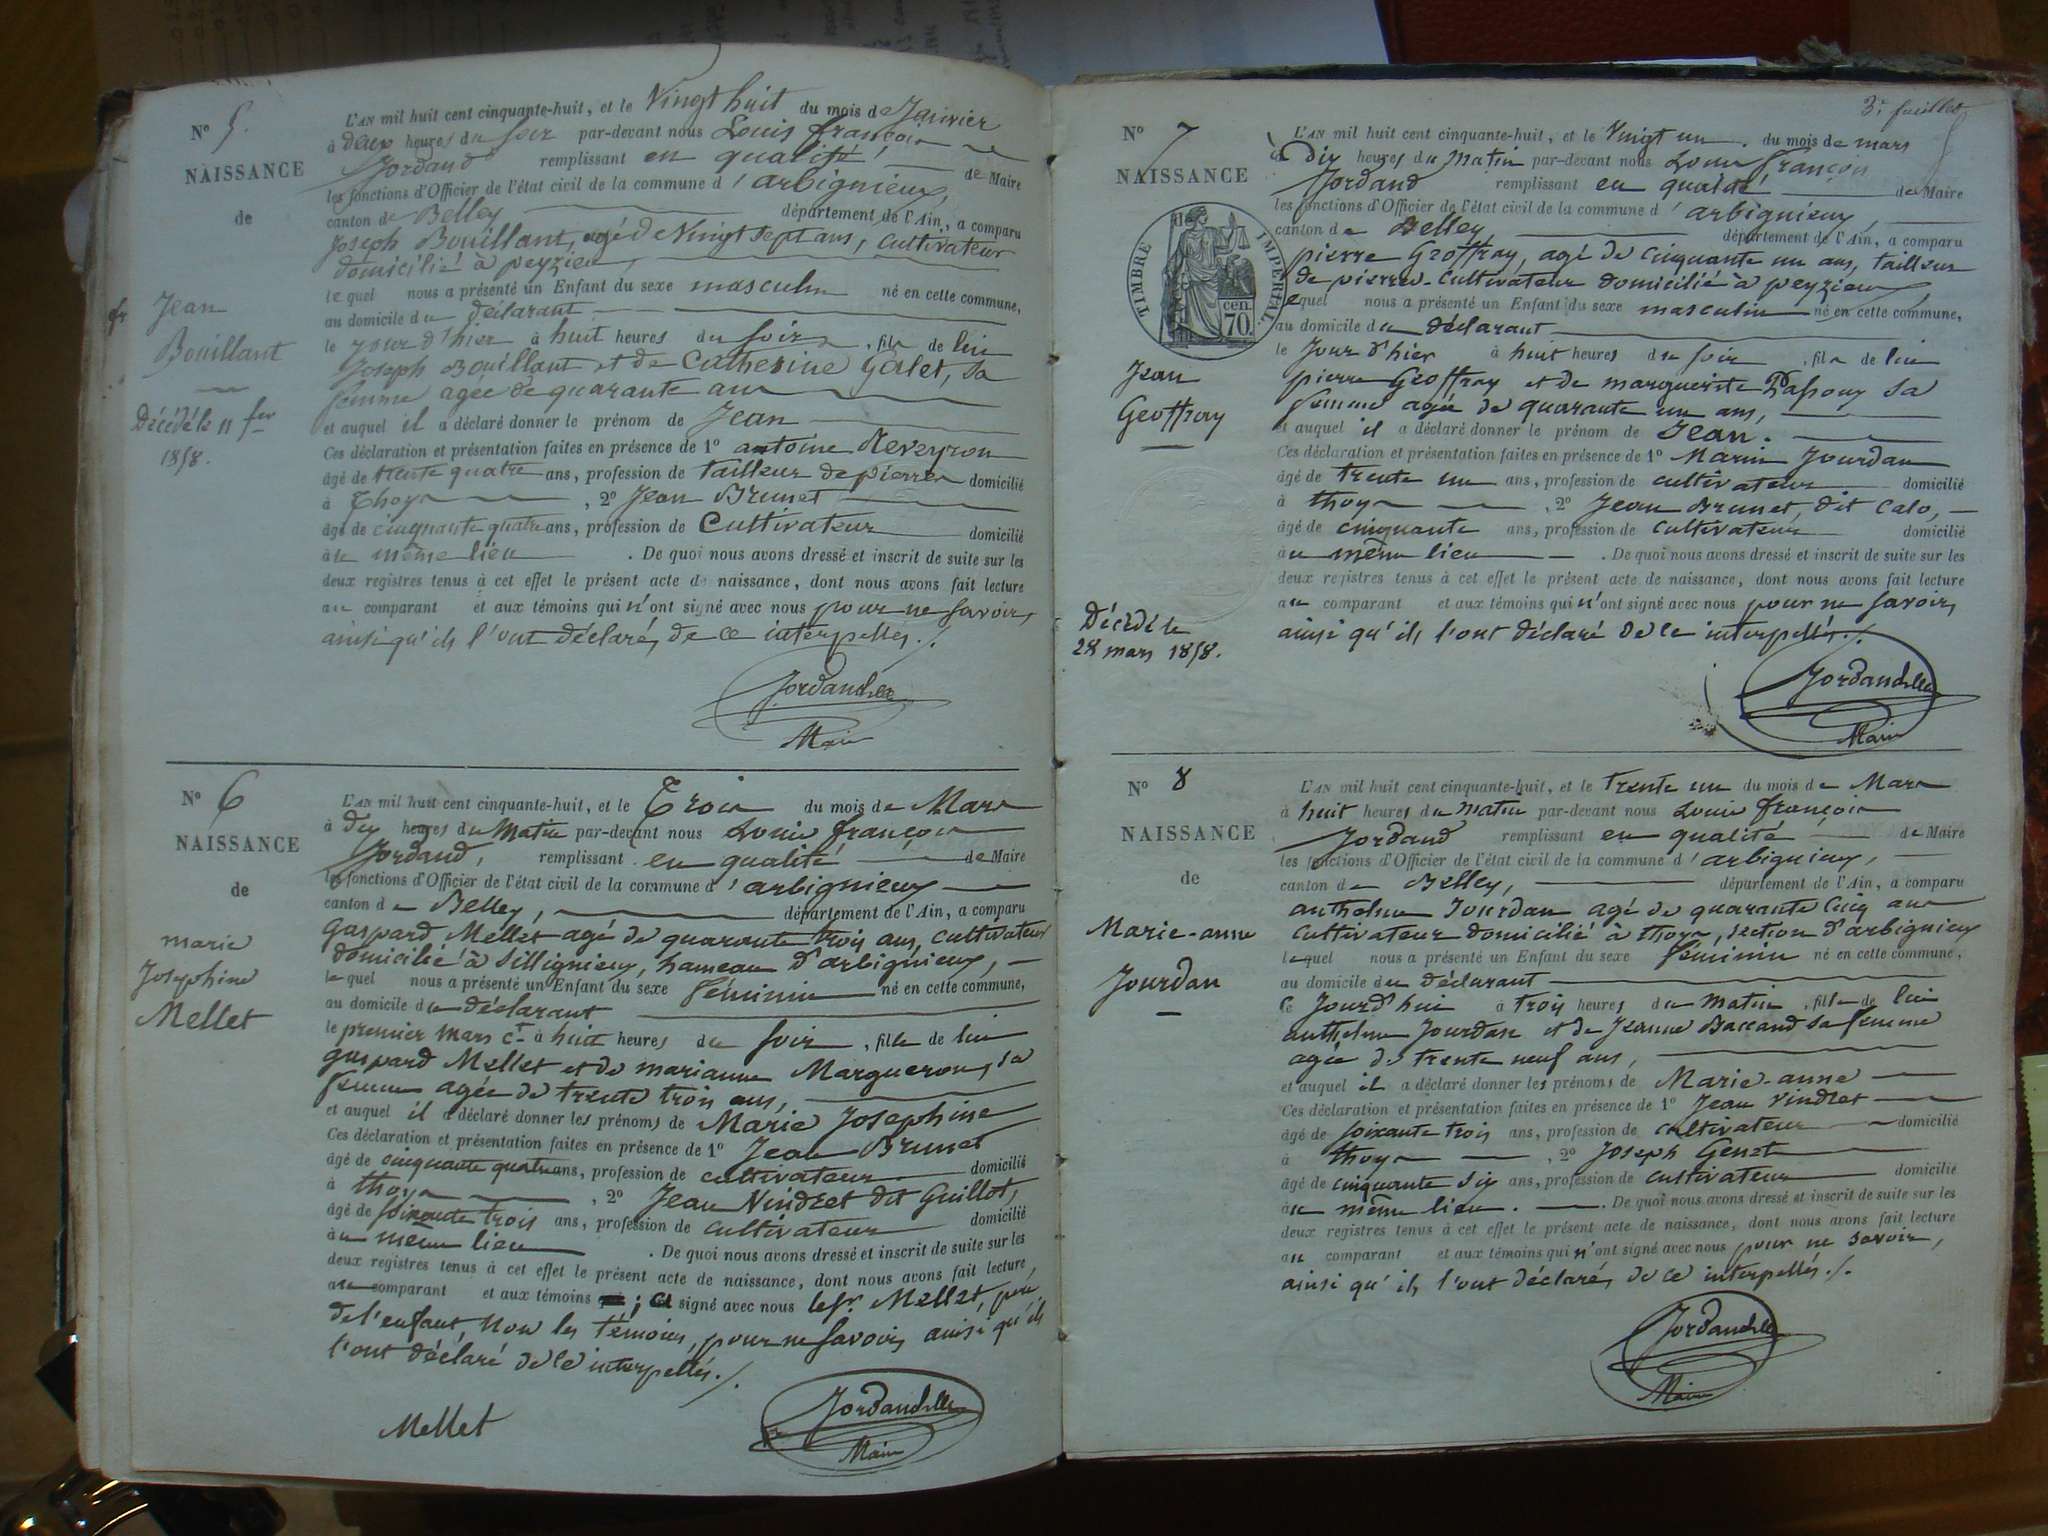 N° 5.
NAISSANCE
de
Jean
Bouillant
Décédé le 11 fer
1858.
L'AN mil huit cent cinquante-huit, et le Vingt huit du mois de Janvier
à deux heures du soir par-devant nous Louis françois
Jordand remplissant en qualité de Maire
les fonctions d'Officier de l'état civil de la commune d'arbignieux,
canton de Belley département de l'Ain, a comparu
Joseph Bouillant, agé de Vingt sept ans, cultivateur
domicilié à peyzieu,
lequel nous a présenté un Enfant du sexe masculin né en cette commune,
au domicile du déclarant
le jour d'hier à huit heures du soir, fils de lui
Joseph Bouillant et de Catherine Galet, sa
femme agée de quarante ans
et auquel il a déclaré donner le prénom de Jean
Ces déclaration et présentation faites en présence de 1° antoine Neveyron
âgé de trente quatre ans, profession de tailleur de pierres domicilié
à Thoys, 2° Jean Brunet
âgé de cinquante quatre ans, profession de Cultivateur domicilié
au même lieu. De quoi nous avons dressé et inscrit de suite sur les
deux registres tenus à cet effet le présent acte de naissance, dont nous avons fait lecture
au comparant et aux témoins qui n'ont signé avec nous pour ne savoir,
ainsi qu'ils l'ont déclaré, de ce interpellés./.
Jordand
Maire
N° 6
NAISSANCE
de
marie
Josephine
Mellet
L'AN mil huit cent cinquante-huit, et le Trois du mois de Mars
à dix heures du Matin par-devant nous Louis françois
Jordand, remplissant en qualité de Maire
les fonctions d'Officier de l'état civil de la commune d'arbignieux
canton de Belley, département de l'Ain, a comparu
gaspard Mellet agé de quarante trois ans, cultivateur
domicilié à Sillignieux, hameau d'arbignieux,
lequel nous a présenté un Enfant du sexe féminin né en cette commune,
au domicile du déclarant
le premier mars ct à huit heures du soir, fille de lui
gaspard Mellet et de marianne Margueron, sa
femme agée de trente trois ans,
et auquel il a déclaré donner les prénoms de Marie Josephine
Ces déclaration et présentation faites en présence de 1° Jean Brunet
âgé de cinquante quatre ans, profession de cultivateur domicilié
à thoys, 2° Jean Vindret dit Guillot,
âgé de soixante trois ans, profession de cultivateur domicilié
au même lieu. De quoi nous avons dressé et inscrit de suite sur les
deux registres tenus à cet effet le présent acte de naissance, dont nous avons fait lecture,
au comparant et aux témoins ; a signé avec nous le sr. Mellet, père
de l'enfant, non les témoins, pour ne savoir, ainsi qu'ils
l'ont déclaré de ce interpellés./.
Mellet
Jordand
Maire
3e feuillet
N° 7
NAISSANCE
TIMBRE IMPERIAL
70 cen.
Jean
Geoffray
Décédé le
28 mars 1858.
L'AN mil huit cent cinquante-huit, et le Vingt un du mois de mars
à dix heures du Matin par-devant nous Louis françois
Jordand remplissant en qualité de Maire
les fonctions d'Officier de l'état civil de la commune d'arbignieux,
canton de Belley, département de l'Ain, a comparu
pierre Geoffray, agé de cinquante un ans, tailleur
de pierres-cultivateur domicilié à peyzieu,
lequel nous a présenté un Enfant du sexe masculin né en cette commune,
au domicile du déclarant
le Jour d'hier à huit heures du soir, fils de lui
pierre Geoffray et de marguerite sa
femme agée de quarante un ans,
et auquel il a déclaré donner le prénom de Jean.
Ces déclaration et présentation faites en présence de 1° Marin Jourdan
âgé de trente un ans, profession de cultivateur domicilié
à thoys, 2° Jean Brunet, dit Calo,
âgé de cinquante ans, profession de cultivateur domicilié
au même lieu. De quoi nous avons dressé et inscrit de suite sur les
deux registres tenus à cet effet le présent acte de naissance, dont nous avons fait lecture
au comparant et aux témoins qui n'ont signé avec nous pour ne savoir,
ainsi qu'ils l'ont déclaré de ce interpellés./.
Jordand
Maire
N° 8
NAISSANCE
de
Marie-anne
Jourdan
L'AN mil huit cent cinquante-huit, et le trente un du mois de Mars
à huit heures du matin par-devant nous Louis françois
Jordand remplissant en qualité de Maire
les fonctions d'Officier de l'état civil de la commune d'arbignieux,
canton de Belley, département de l'Ain, a comparu
anthelme Jourdan agé de quarante cinq ans
cultivateur domicilié à thoys, section d'arbignieux
lequel nous a présenté un Enfant du sexe féminin né en cette commune,
au domicile du déclarant
ce jourd'hui à trois heures du matin, fille de lui
anthelme Jourdan et de Jeanne Baccand sa femme
agée de trente neuf ans,
et auquel il a déclaré donner les prénoms de Marie-anne
Ces déclaration et présentation faites en présence de 1° Jean Vindret
âgé de soixante trois ans, profession de cultivateur domicilié
à thoys, 2° Joseph Genet
âgé de cinquante six ans, profession de cultivateur domicilié
au même lieu. De quoi nous avons dressé et inscrit de suite sur les
deux registres tenus à cet effet le présent acte de naissance, dont nous avons fait lecture
au comparant et aux témoins qui n'ont signé avec nous pour ne savoir,
ainsi qu'ils l'ont déclaré, de ce interpellés./.
Jordand
Maire